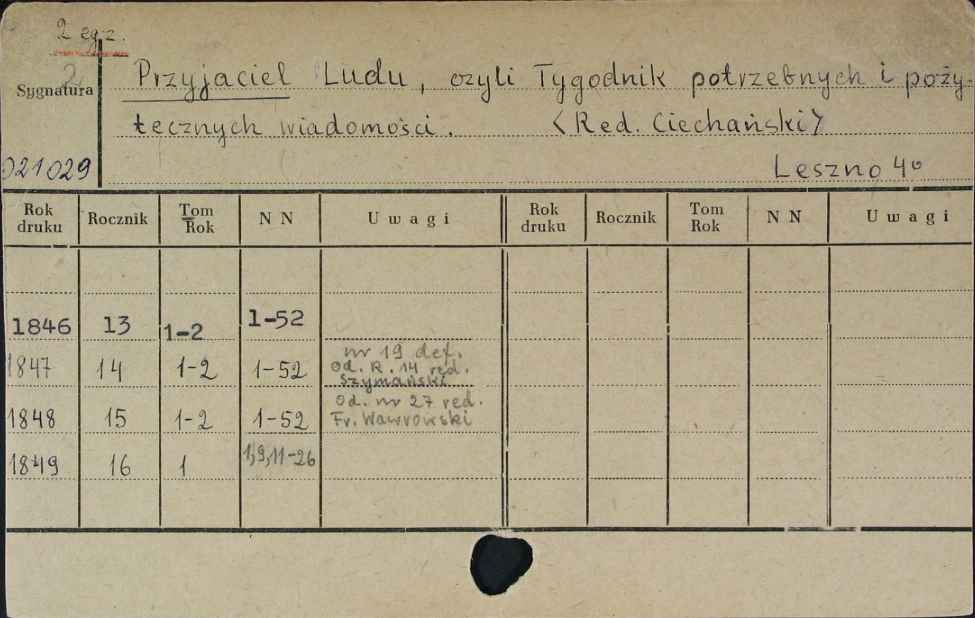 2 egz.
2
Sygnatura
Przyjaciel Ludu, czyli Tygodnik potrzebnych i poży-
tecznych wiadomości. <Red. Ciechański>
021029
Leszno 4°
Rok druku Rocznik Tom Rok N N Uwagi Rok druku Rocznik Tom Rok N N Uwagi
1846 13 1-2 1-52
1847 14 1-2 1-52 nr 19 def.
Od. R. 14 red.
Szymański
1848 15 1-2 1-52 Od. nr 27 red.
Fr. Wawrowski
1849 16 1 1,9,11-26